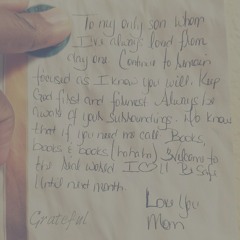 To my only son whom
I've always loved from
day one. Continue to remain
focused as I know you will. Keep
God first and foremost. Always be
aware of your surroundings. Also know
that if you need me call. Books,
books & books (hahaha) Welcome to
the real world I ♡ U Be Safe
Until next month.
Love You
Mom
Grateful